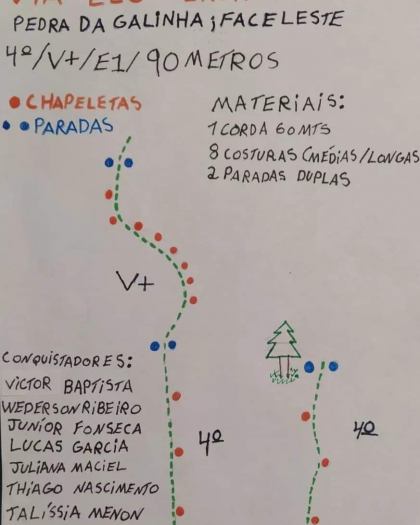 PEDRA DA GALINHA; FACE LESTE
4º/V+/E1/90 METROS
CHAPELETAS
PARADAS
MATERIAIS:
1 CORDA 60MTS
8 COSTURAS (MÉDIAS/LONGAS
2 PARADAS DUPLAS
V+
CONQUISTADORES:
VICTOR BAPTISTA
WEDERSON RIBEIRO
JUNÍOR FONSECA
LUCAS GARCIA
JULIANA MACIEL
THIAGO NASCIMENTO
TALÍSSIA MENON
4º
4º